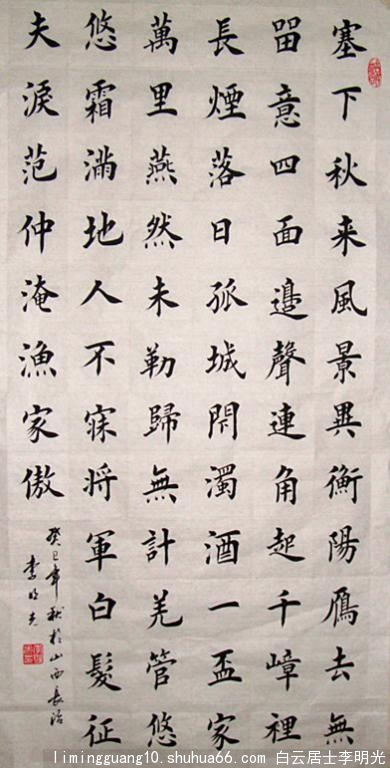 塞下秋来風景異衡陽鴈去無
㽞意四面邉聲連角起千嶂裡
長煙落日孤城閇濁酒一盃家
萬里燕然未勒歸無計羌管悠
悠霜滿地人不寐将軍白髮征
夫淚范仲淹漁家傲
癸巳年秋於山西長治
李明光
limingguang10.shuhua66.com 白云居士李明光